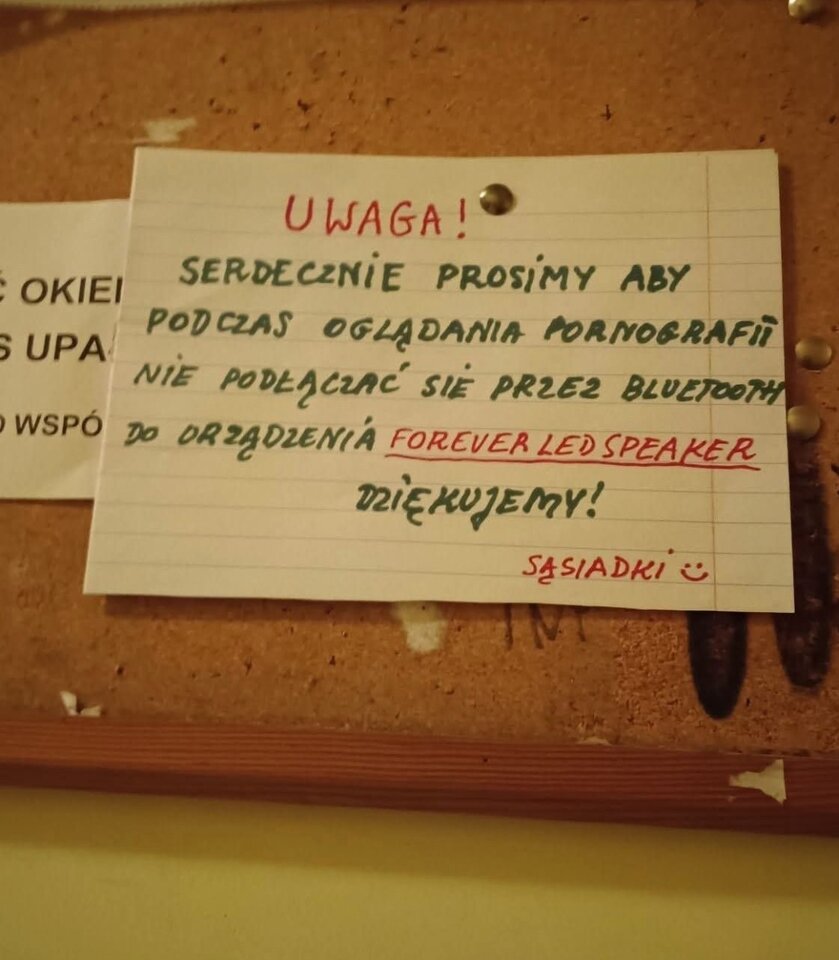 UWAGA!
SERDECZNIE PROSIMY ABY
PODCZAS OGLĄDANIA PORNOGRAFII
NIE PODŁĄCZAĆ SIĘ PRZEZ BLUETOOTH
DO URZĄDZENIA FOREVER LED SPEAKER
DZIĘKUJEMY!
SĄSIADKI :)
OKIE
UPA
WSPÓ